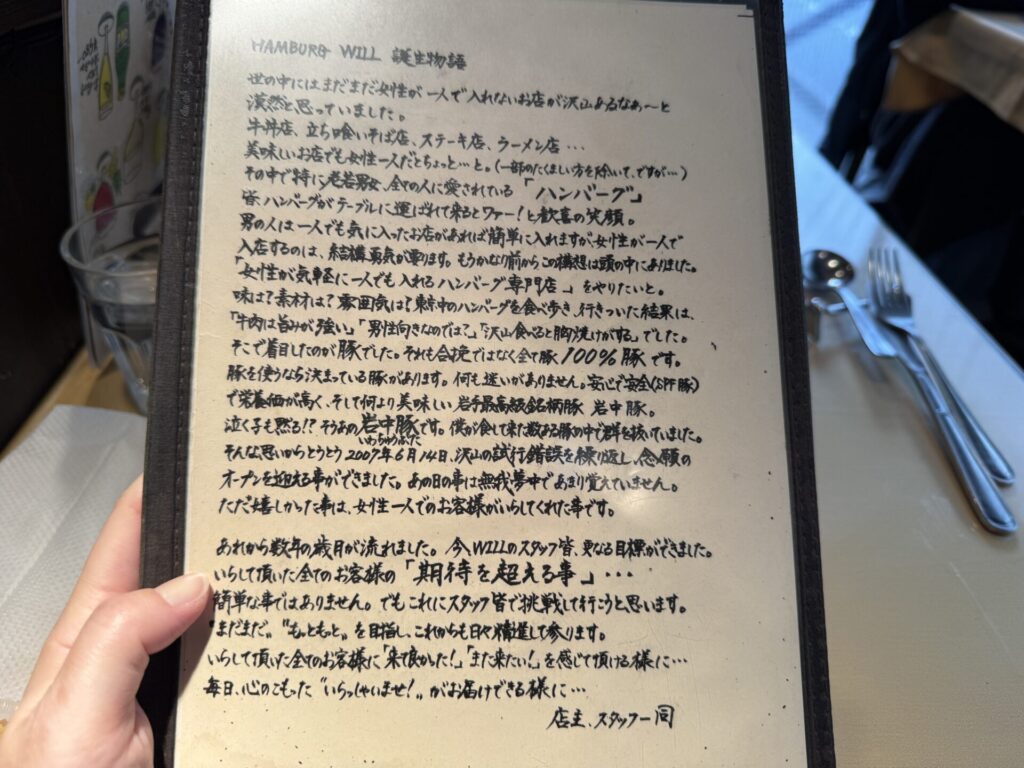 HAMBURG WILL 誕生物語
世の中にはまだまだ女性が一人で入れないお店が沢山あるなぁ〜と
漠然と思っていました。
牛丼店、立ち喰いそば店、ステーキ店、ラーメン店…
美味しいお店でも女性一人だとちょっと…と。(一部のたくましい方を除いて、ですが…)
その中で特に老若男女、全ての人に愛されている「ハンバーグ」
皆、ハンバーグがテーブルに運ばれて来るとワァー!と歓喜の笑顔。
男の人は一人でも気に入ったお店があれば簡単に入れますが、女性が一人で
入店するのは、結構勇気が要ります。もうかなり前からこの構想は頭の中にありました。
「女性が気軽に一人でも入れるハンバーグ専門店。」をやりたいと。
味は?素材は?雰囲気は?東京中のハンバーグを食べ歩き、行きついた結果は、
「牛肉は旨みが強い」「男性向きなのでは?」「沢山食べると胸焼けがする」でした。
そこで着目したのが豚でした。それも合挽ではなく全て豚、100%豚です。
豚を使うなら決まっている豚があります。何も迷いがありません。安心で安全(SPF豚)
で栄養価が高く、そして何より美味しい岩手最高級銘柄豚 岩中豚。
泣く子も黙る!?そうあの岩中豚です。僕が食して来た数ある豚の中で群を抜いていました。
いわちゅうぶた
そんな思いからとうとう2007年6月14日、沢山の試行錯誤を繰り返し、念願の
オープンを迎える事ができました。あの日の事は無我夢中であまり覚えていません。
ただ嬉しかった事は、女性一人でのお客様がいらしてくれた事です。
あれから数年の歳月が流れました。今、WILLのスタッフ皆、更なる目標ができました。
いらして頂いた全てのお客様の「期待を超える事」…
簡単な事ではありません。でもこれにスタッフ皆で挑戦して行こうと思います。
"まだまだ"、"もっともっと"を目指し、これからも日々精進して参ります。
いらして頂いた全てのお客様に「来て良かった!」「また来たい!」を感じて頂ける様に…
毎日、心のこもった"いらっしゃいませ!"がお届けできる様に…
店主、スタッフ一同